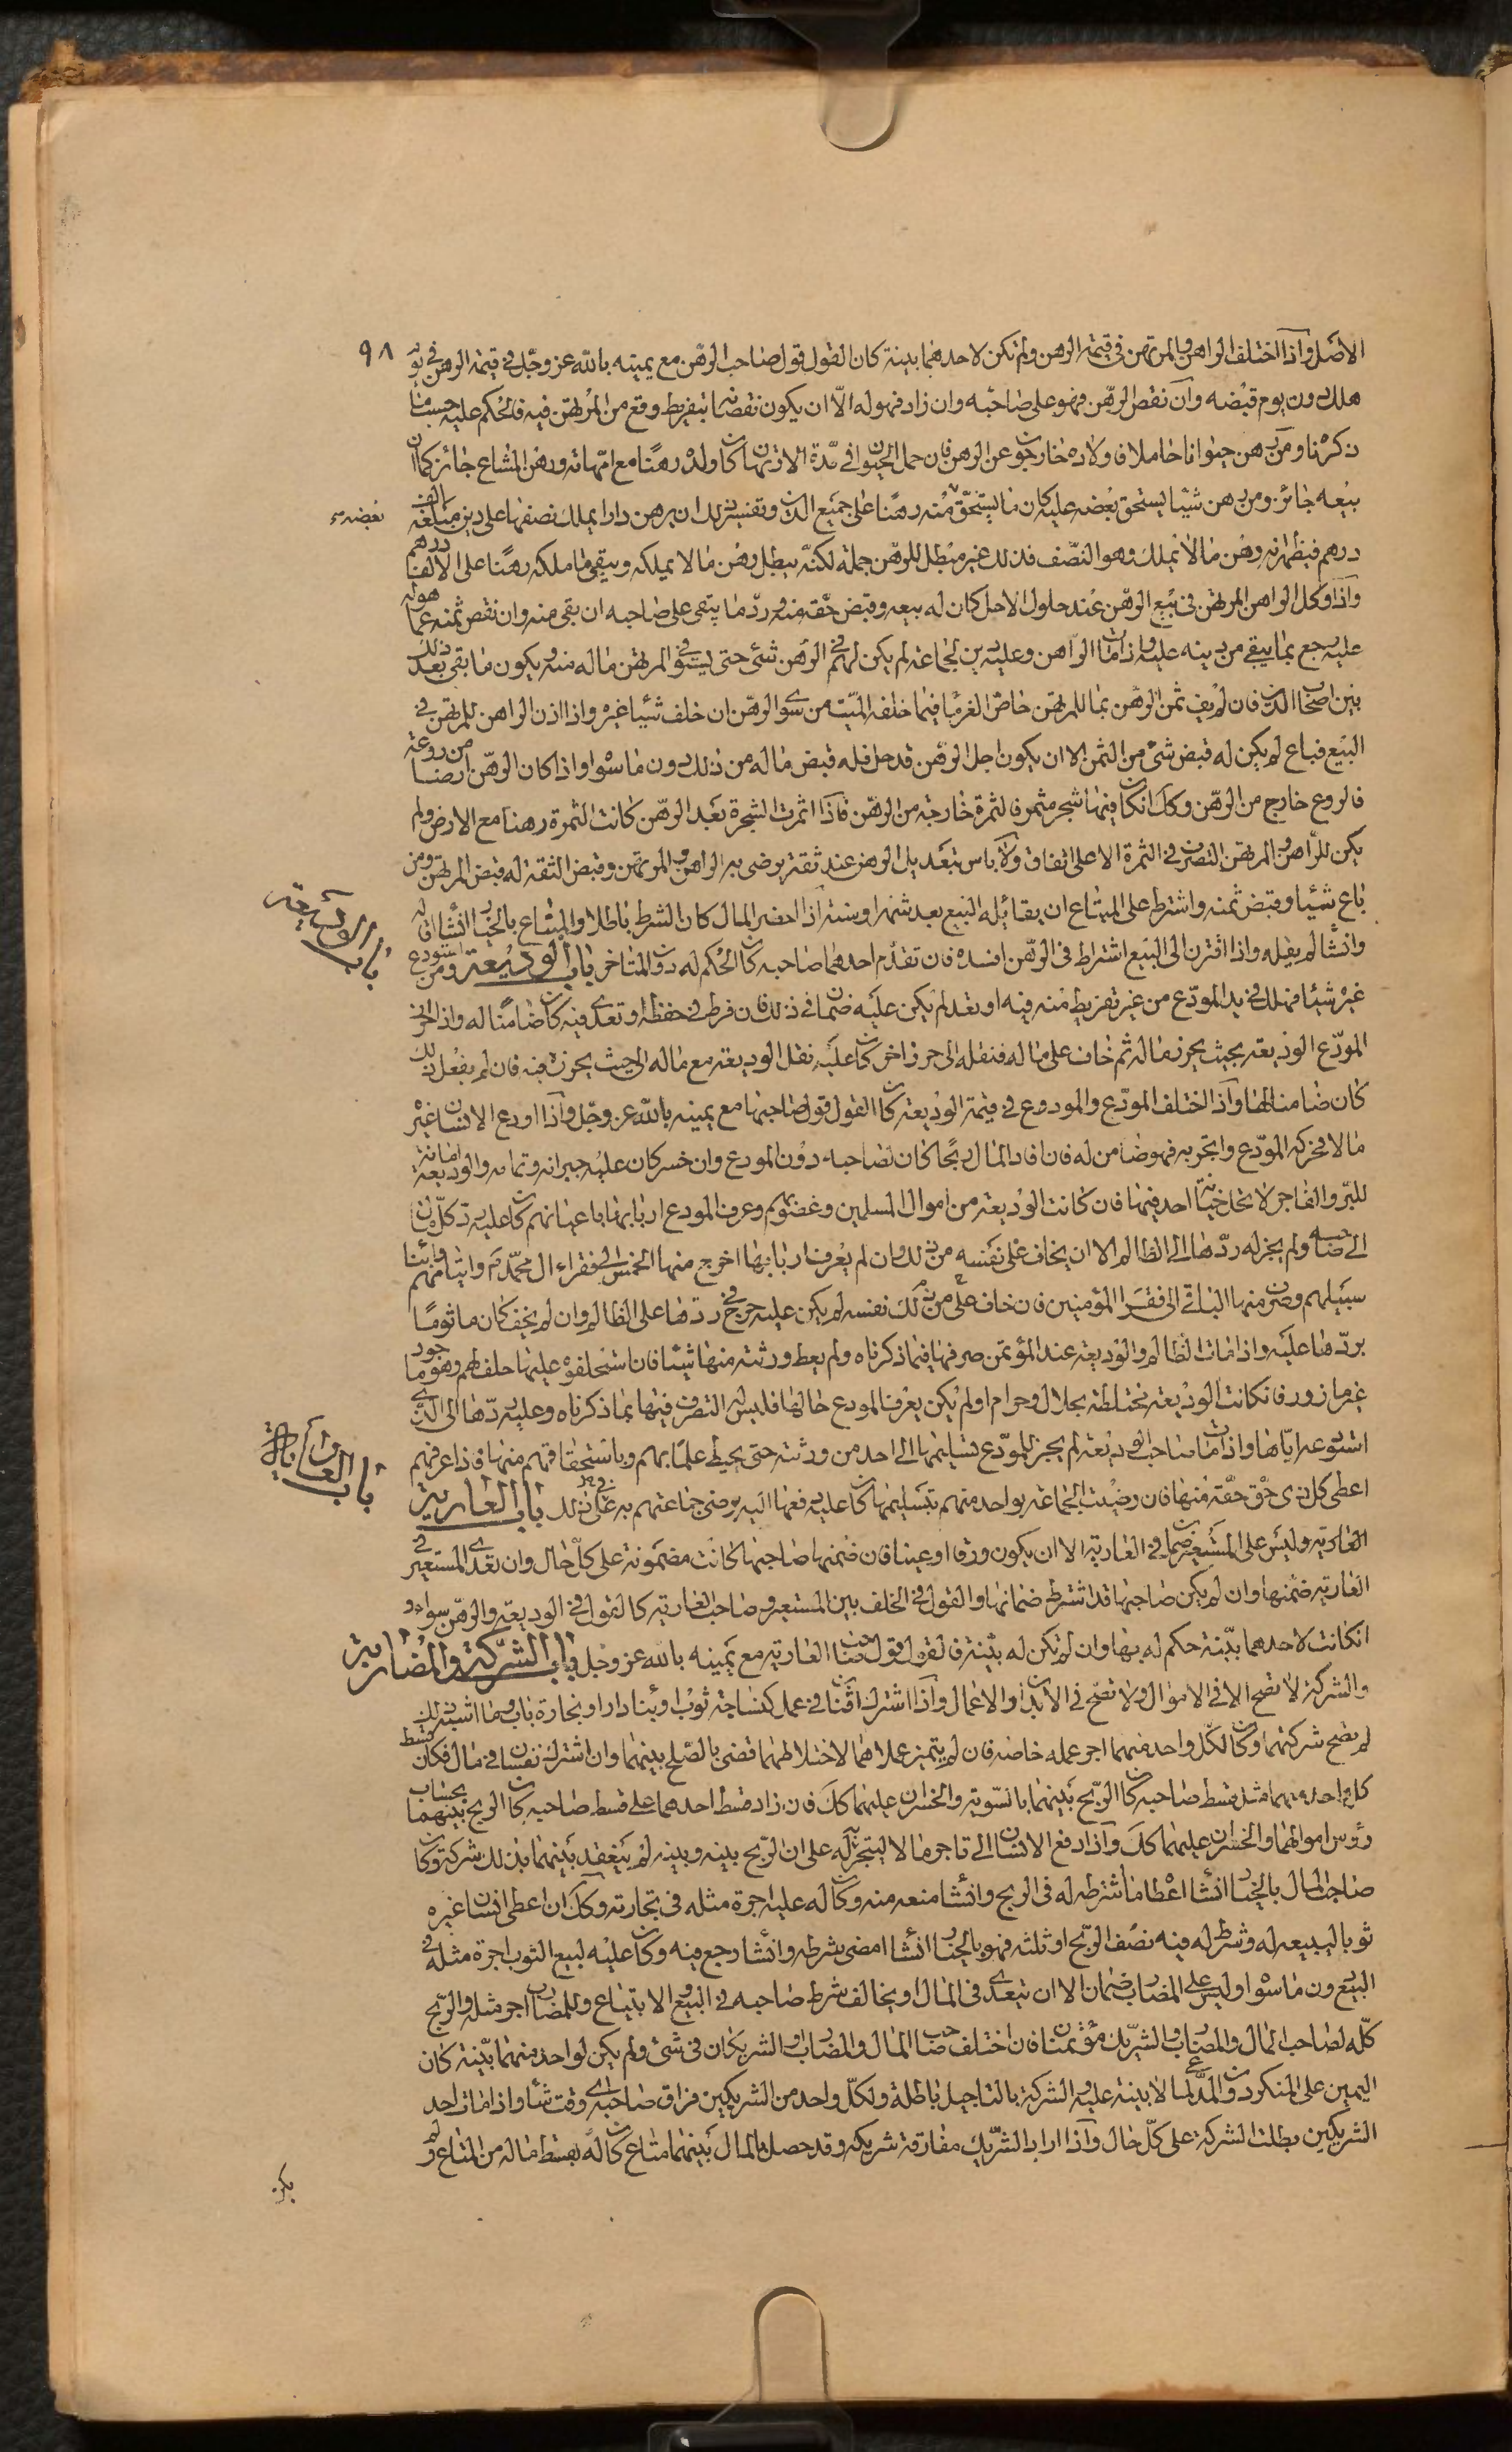 ٩٨
الاصل واذا اختلف الراهن والمرتهن في قيمة الرهن ولم تكن لاحدهما بينة كان القول قول صاحب الرهن مع يمينه بالله عز وجل في قيمة الرهن في يوم
هلك دون يوم قبضه وان نقص الرهن فهو على صاحبه وان زاد فهو له الا ان يكون نقصانه بتفريط وقع من المرتهن فيه فالحكم عليه حسب ما
ذكرناه ومن رهن حيوانا حاملا فاولاده خارجون عن الرهن فان حمل الحيوان في مدة الارتهان كان ولده رهنا مع امهاته ورهن المشاع جائز كما ان
بيعه جائز ومن رهن شيئا يستحق بعضه عليه كان ما يستحق منه رهنا على جميع الدين وتفسير ذلك ان يرهن دارا يملك نصفها على دين مبلغه الف
درهم فيظهر انه رهن ما لا يملك وهو النصف فذلك غير مبطل للرهن جملة لكنه يبطل رهن ما لا يملكه ويبقى ما ملكه رهنا على الالف درهم
واذا وكل الراهن المرتهن في بيع الرهن عند حلول الاجل كان له بيعه وقبض حقه منه ورد ما يبقى على صاحبه ان بقي منه وان نقص ثمنه عما هو له
عليه رجع بما يبقى من دينه عليه واذا مات الراهن وعليه دين لجماعة لم يكن لهم في الرهن شئ حتى يستوفي المرتهن ماله منه ويكون ما بقي بعد ذلك
بين اصحاب الدين فان لم يف ثمن الرهن بما للمرتهن خاص الغرماء فيما خلفه الميت من سوى الرهن ان خلف شيئا غيره واذا اذن الراهن للمرتهن في
البيع فباع لم يكن له قبض شئ من الثمن الا ان يكون اجل الرهن قد حل فله قبض ماله من ذلك دون ما سواه واذا كان الرهن ارضا مزروعة
فالزرع خارج من الرهن وكذلك ان كان فيها شجر مثمر فالثمرة خارجة من الرهن فاذا اثمرت الشجرة بعد الرهن كانت الثمرة رهنا مع الارض ولم
يكن للراهن والمرتهن التصرف في الثمرة الا على اتفاق ولا باس بتعديل الرهن عند ثقة يرضى به الراهن والمرتهن وقبض الثقة له قبض المرتهن ومن
باع شيئا وقبض ثمنه واشترط على المبتاع ان يقايله البيع بعد شهر او سنة اذا احضر المال كان الشرط باطلا والمبتاع بالخيار ان شاء اقاله
وان شاء لم يقله واذا اقترن الى البيع اشتراط في الرهن افسده فان تقدم احدهما صاحبه كان الحكم له دون المتاخر باب الوديعة ومن استودع
غيره شيئا فهلك في يد المودع من غير تفريط منه فيه او تعد لم يكن عليه ضمان في ذلك فان فرط في حفظه او تعدى فيه كان ضامنا له واذا احرز
المودع الوديعة بحيث يحرز ماله ثم خاف على ماله فنقله الى حرز اخر كان عليه نقل الوديعة مع ماله الى حيث يحرزه فيه فان لم يفعل ذلك
كان ضامنا لها واذا اختلف المودع والمودوع في قيمة الوديعة كان القول قول صاحبها مع يمينه بالله عز وجل واذا اودع الانسان غيره
مالا فحركه المودع واتجر به فهو ضامن له فان افاد المال ربحا كان لصاحبه دون المودع وان خسر كان عليه جبرانه وتمامه والوديعة امانة
للبر والفاجر لا يحل خيانة احد فيها فان كانت الوديعة من اموال المسلمين وغصوبهم وعرف المودع اربابها باعيانهم كان عليه رد كل مال
الى صاحبه ولم يجز له ردها الى الظالم الا ان يخاف على نفسه من ذلك وان لم يعرف اربابها اخرج منها الخمس الى فقراء ال محمد ع وايتامهم وابناء
سبيلهم وصرف منها الباقي الى فقراء المؤمنين فان خاف على من ذلك نفسه لم يكن عليه حرج في ردها على الظالم وان لم يخف كان ماثوما
بردها عليه واذا مات الظالم والوديعة عند المؤتمن صرفها فيما ذكرناه ولم يعط ورثته منها شيئا فان استحلفوه عليها حلف لهم وهو ماجور
غير مازور فان كانت الوديعة مختلطة بحلال وحرام او لم يكن يعرف المودع حالها فليس له التصرف فيها بما ذكرناه وعليه ردها الى الذي
استودعه اياها واذا مات صاحب الوديعة لم يجز للمودع تسليمها الى احد من ورثته حتى يحيط علما بهم وباستحقاقهم منها فاذا عرفهم
اعطى كل ذي حق حقه منها فان رضيت الجماعة بواحد منهم بتسليمها كان عليه دفعها اليه برضى جماعتهم به على ذلك باب العارية
العارية وليس على المستعير ضمان في العارية الا ان يكون ورقا او عينا فان ضمنها صاحبها كانت مضمونة على كل حال وان تعدى المستعير في
العارية ضمنها وان لم يكن صاحبها قد اشترط ضمانها والقول في الخلف بين المستعير وصاحب العارية كالقول في الوديعة والرهن سواء و
ان كانت لاحدهما بينة حكم له بها وان لم تكن له بينة فالقول قول صاحب العارية مع يمينه بالله عز وجل باب الشركة والمضاربة
والشركة لا تصح الا في الاموال ولا تصح في الابدان والاعمال واذا اشترك اثنان في عمل كنساجة ثوب او بناء دار او نجارة باب وما اشبه ذلك
لم تصح شركتهما وكان لكل واحد منهما اجر عمله خاصة فان لم يتميز عملاهما لاختلاطهما قضي بالصلح بينهما وان اشترك نفسان في مال فكان قسط
كل واحد منهما مثل قسط صاحبه كان الربح بينهما بالسوية والخسران عليهما كذلك فان زاد قسط احدهما على قسط صاحبه كان الربح بينهما بحساب
رؤس اموالهما والخسران عليهما كذلك واذا دفع الانسان الى تاجر مالا ليتجر له على ان الربح بينه وبينه لم ينعقد بينهما بذلك شركة وكان
صاحب المال بالخيار ان شاء اعطاه ما اشترطه له في الربح وان شاء منعه منه وكان له عليه اجرة مثله في تجارته وكذلك ان اعطى انسان غيره
ثوبا ليبيعه له وشرط له فيه نصف الربح او ثلثه فهو بالخيار ان شاء امضى شرطه وان شاء رجع فيه وكان عليه لبيع الثوب اجرة مثله في
البيع دون ما سواه وليس على المضارب ضمان الا ان يتعدى في المال او يخالف شرط صاحبه في البيع والابتياع وللمضارب اجر مثله والربح
كله لصاحب المال والمضارب والشريك مؤتمنان فان اختلف صاحب المال والمضارب او الشريكان في شئ ولم يكن لواحد منهما بينة كان
اليمين على المنكر دون المدعي لما لا بينة عليه والشركة بالتاجيل باطلة ولكل واحد من الشريكين فراق صاحبه اي وقت شاء واذا مات احد
الشريكين بطلت الشركة على كل حال واذا اراد الشريك مفارقة شريكه وقد حصل بالمال بينهما متاع كان له بقسط ماله من المتاع ولم
يكن
باب الوديعة
باب العارية
بعضه